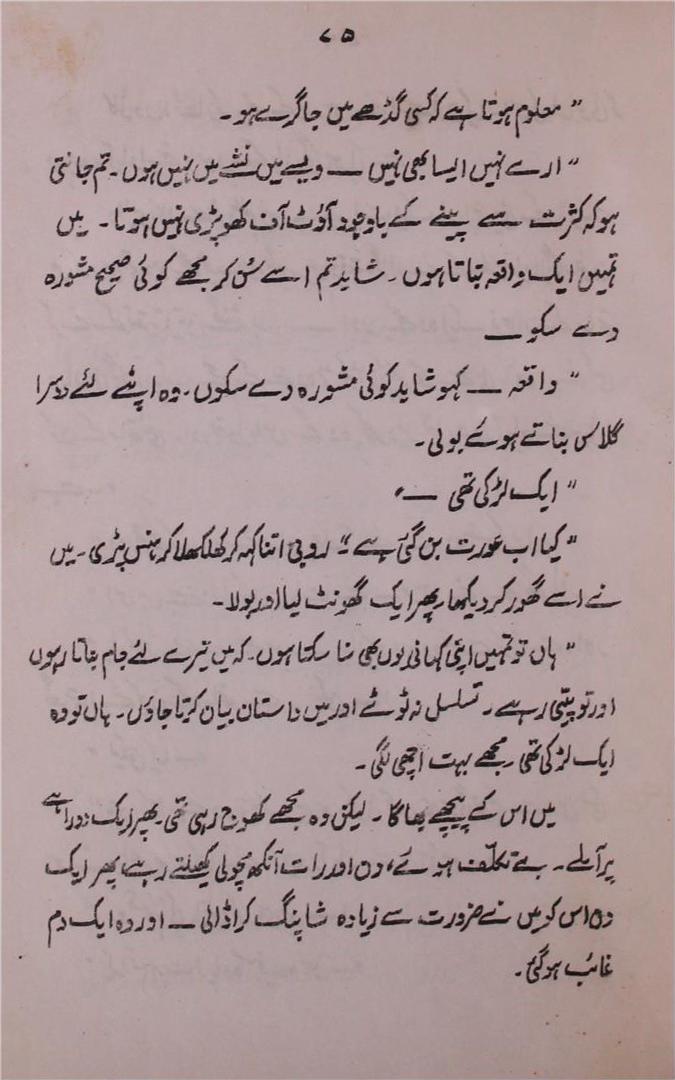 ۷۵
" معلوم ہوتا ہے کہ کسی گڈھے میں جا گرے ہو ۔
" ارے نہیں ایسا بھی نہیں ـــ ویسے میں نشے میں نہیں ہوں ۔ تم جانتی
ہو کہ کثرت سے پینے کے باوجود آؤٹ آف کھوپڑی نہیں ہوتا ۔ میں
تمہیں ایک واقعہ بتاتا ہوں ۔ شاید تم اسے سُن کر مجھے کوئی صحیح مشورہ
دے سکو ـــ
" واقعہ ـــ کہو شاید کوئی مشورہ دے سکوں ۔ وہ اپنے لئے دوسرا
گلاس بناتے ہوئے بولی ۔
" ایک لڑکی تھی ـــ "
" کیا اب عورت بن گئی ہے " روبی اتنا کہہ کر کھلکھلا کر ہنس پڑی ۔ میں
نے اسے گھور کر دیکھا، پھر ایک گھونٹ لیا اور بولا ۔
" ہاں تو تمہیں اپنی کہانی یوں بھی سنا سکتا ہوں ۔ کہ میں تیرے لئے جام بناتا رہوں
اور تو پیتی رہے ۔ تسلسل نہ ٹوٹے اور میں داستان بیان کرتا جاؤں ۔ ہاں تو وہ
ایک لڑکی تھی ۔ مجھے بہت اچھی لگی ۔
میں اس کے پیچھے بھاگا ۔ لیکن وہ مجھے کھوج رہی تھی ۔ پھر ایک دوراہے
پر آملے ۔ بے تکلف ہوئے، دن اور رات آنکھ مچولی کھیلتے رہے، پھر ایک
دن اس کو میں نے ضرورت سے زیادہ شاپنگ کرا ڈالی ـــ اور وہ ایک دم
غائب ہو گئی ۔